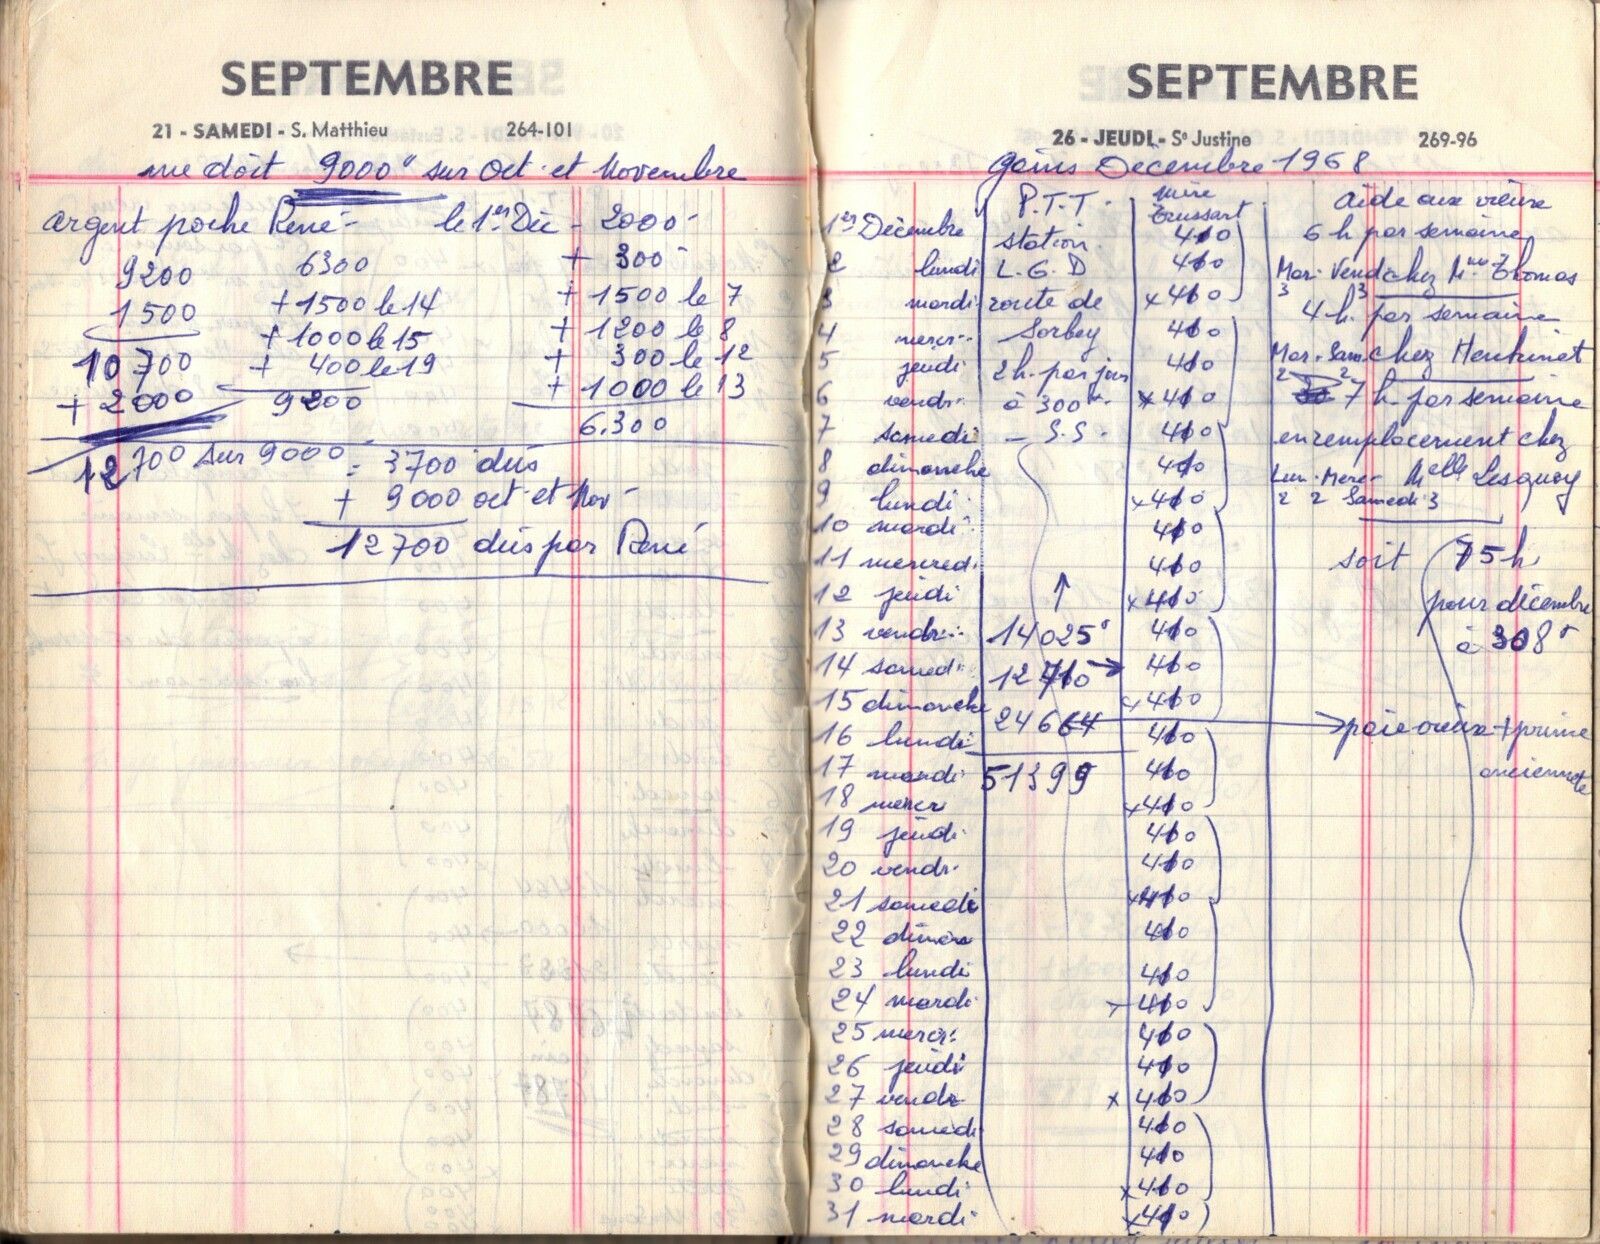 SEPTEMBRE
21 - SAMEDI - S. Matthieu 264-101
me doit 9000 sur Oct. et Novembre
argent poche René - le 1er Déc - 2000 -
9200 6300 + 300
1500 + 1500 le 14 + 1500 le 7
10700 + 1000 le 15 + 1200 le 8
+ 2000 + 400 le 19 + 300 le 12
9200 + 1000 le 13
6.300
12700 sur 9000 = 3700 dûs
+ 9000 oct et Nov -
12700 dûs par René
SEPTEMBRE
26 - JEUDI - Se Justine 269-96
gains Decembre 1968
P.T.T. mère Trussart aide aux vieux
1er Décembre station 410 6 h par semaine
2 lundi L.G.D 410 Mar. Vend chez Mme Thomas
3 3
3 mardi route de x 410 4 h. par semaine
4 mercr. Sorbey 410 Mar. Sam. chez
2 2
5 jeudi 2 h. par jour 410 7 h. par semaine
6 vendr. à 300 x 410 en remplacement chez
7 samedi - S.S. 410 Lun. Mere. Melle Lesquoy
2 2 Samedi 3
8 dimanche 410
9 lundi x 410
10 mardi 410 soit 75 h
11 mercredi 410 pour décembre
12 jeudi x 410 à 308
13 vendr. 14025 410
14 samedi 12710 → 410
15 dimanche x 410
16 lundi 24664 → 410 paie vieux + prime
17 mardi 51399 410 ancienneté
18 mercr x 410
19 jeudi 410
20 vendr. 410
21 samedi x 410
22 diman 410
23 lundi 410
24 mardi x 410
25 mercr. 410
26 jeudi 410
27 vendr x 410
28 samedi 410
29 dimanche 410
30 lundi x 410
31 mardi x 410